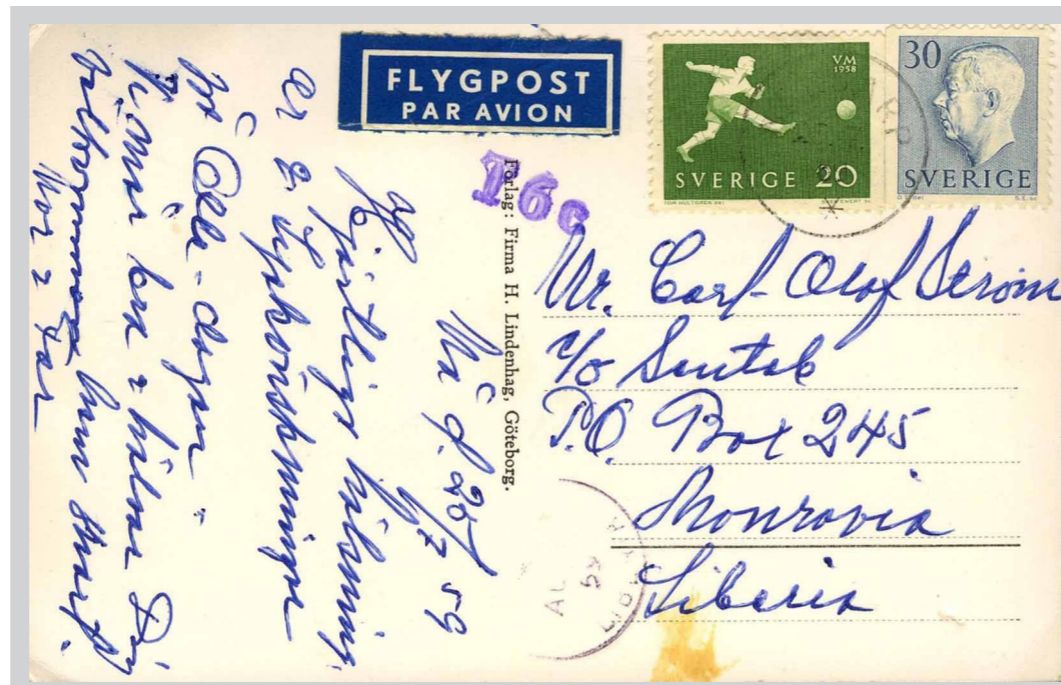 FLYGPOST
PAR AVION
VM
1958
SVERIGE 20
30
SVERIGE
T6c
Förlag: Firma H. Lindenhag, Göteborg.
Mr. Carl-Olof Ström
c/o Sentab
P.O. Box 245
Monrovia
Liberia
d. 25/7 59
Hjärtlig hälsning
o. Lyckönskningar
på Olle-dagen
hälsar Dig
välkommen hem
Mor o Far